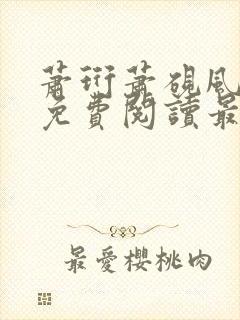 蕭珩蕭硯風
免費閱讀最
最愛櫻桃肉